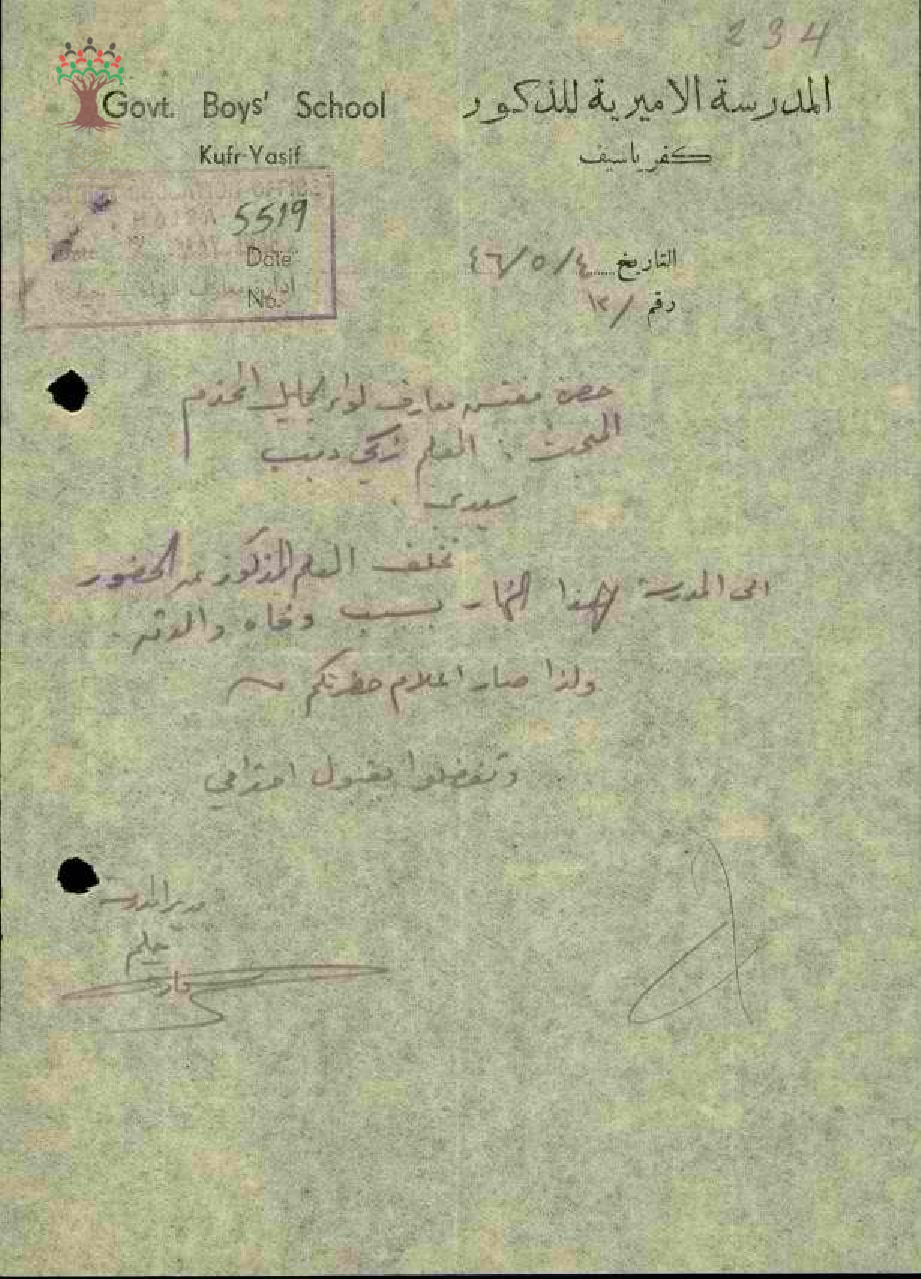 234
Govt. Boys' School
المدرسة الاميرية للذكور
Kufr-Yasif
كفر ياسيف
5519
Date
No.
التاريخ ٤٦/٥/٤
رقم /١٢
حضرة مفتش معارف لواء الجليل المحترم
المبحث : المعلم زكي ديب
سيدي .
تخلف المعلم المذكور عن الحضور
الى المدرسة لهذا النهار بسبب وفاه والدته .
ولذا صار اعلام حضرتكم
وتفضلوا بقبول احترامي
مدير المدرسة